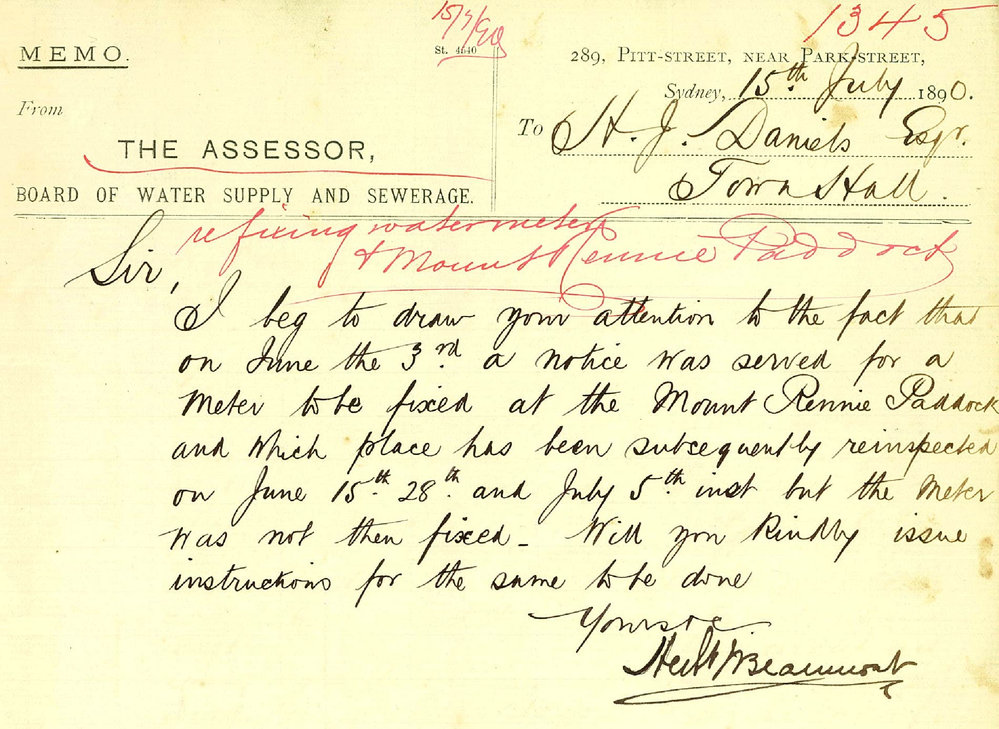 15/7/90
1345
MEMO.
St. 4640
289, PITT-STREET, NEAR PARK-STREET,
Sydney, 15th July 1890.
From
To H. J. Daniels Esqr.
THE ASSESSOR,
Town Hall.
BOARD OF WATER SUPPLY AND SEWERAGE.
refixing water meter
+ Mount Rennie Paddock
Sir,
I beg to draw your attention to the fact that
on June the 3rd a notice was served for a
Meter to be fixed at the Mount Rennie Paddock
and which place has been subsequently reinspected
on June 15th 28th and July 5th inst but the Meter
was not then fixed - Will you kindly issue
instructions for the same to be done
Yours &c
Beaumont